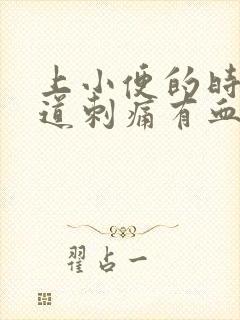 上小便的时
道刺痛有血
翟占一